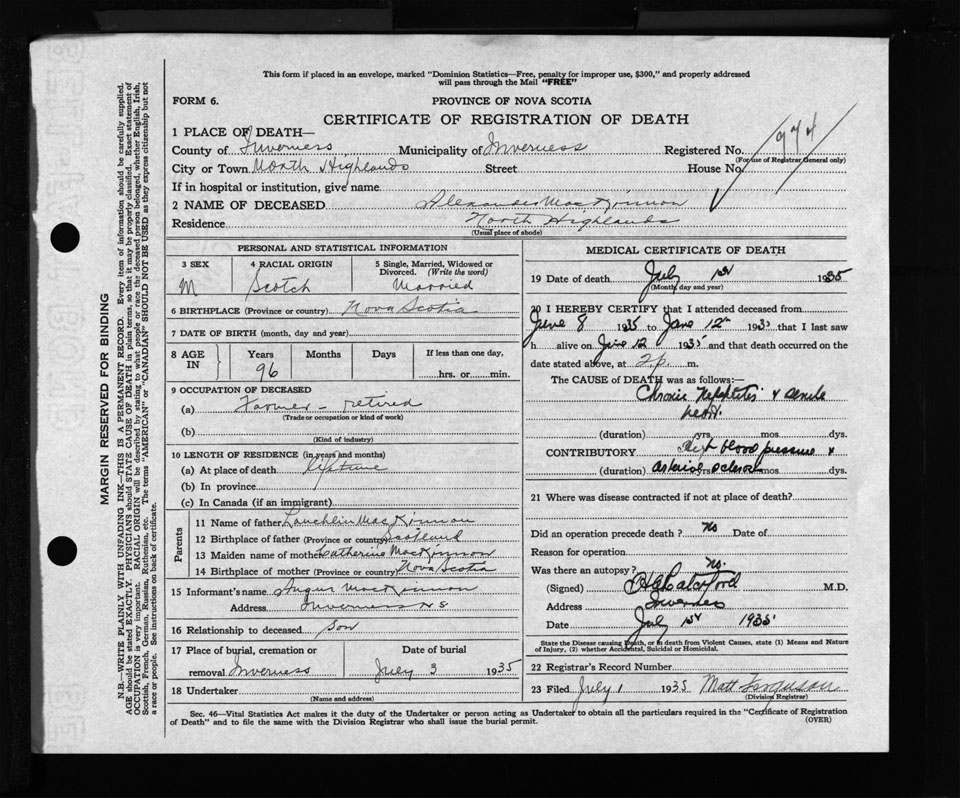 This form if placed in an envelope, marked "Dominion Statistics—Free, penalty for improper use, $300," and properly addressed
will pass through the Mail "FREE"
FORM 6.
PROVINCE OF NOVA SCOTIA
CERTIFICATE OF REGISTRATION OF DEATH
974
1 PLACE OF DEATH—
County of Inverness Municipality of Inverness Registered No.
(For use of Registrar General only)
City or Town North Highlands Street House No.
If in hospital or institution, give name
2 NAME OF DECEASED Alexander MacKinnon
Residence North Highlands
(Usual place of abode)
PERSONAL AND STATISTICAL INFORMATION
3 SEX 4 RACIAL ORIGIN 5 Single, Married, Widowed or
Divorced. (Write the word)
M Scotch Married
6 BIRTHPLACE (Province or country) Nova Scotia
7 DATE OF BIRTH (month, day and year)
8 AGE IN Years Months Days If less than one day,
96 hrs. or min.
9 OCCUPATION OF DECEASED
(a) Farmer - retired
(Trade or occupation or kind of work)
(b)
(Kind of industry)
10 LENGTH OF RESIDENCE (in years and months)
(a) At place of death lifetime
(b) In province
(c) In Canada (if an immigrant)
Parents
11 Name of father Lauchlin MacKinnon
12 Birthplace of father (Province or country) Scotland
13 Maiden name of mother Catherine MacKinnon
14 Birthplace of mother (Province or country) Nova Scotia
15 Informant's name Angus MacKinnon
Address Inverness NS
16 Relationship to deceased son
17 Place of burial, cremation or Date of burial
removal Inverness July 3 1935
18 Undertaker
(Name and address)
MEDICAL CERTIFICATE OF DEATH
19 Date of death July 1st 1935
(Month, day and year)
20 I HEREBY CERTIFY that I attended deceased from
June 8 1935 to June 12th 1935 that I last saw
h alive on June 12 1935 and that death occurred on the
date stated above, at 2 p. m.
The CAUSE of DEATH was as follows:—
Chronic Nephritis & senile
heart.
(duration) yrs. mos. dys.
CONTRIBUTORY blood pressure &
(duration) yrs. mos. dys.
21 Where was disease contracted if not at place of death?
Did an operation precede death? No Date of
Reason for operation
Was there an autopsy? No.
(Signed) M.D.
Address Inverness
Date July 1st 1935
State the Disease causing Death, or in death from Violent Causes, state (1) Means and Nature
of Injury, (2) whether Accidental, Suicidal or Homicidal.
22 Registrar's Record Number
23 Filed July 1 1935 Matt Ferguson
(Division Registrar)
Sec. 46—Vital Statistics Act makes it the duty of the Undertaker or person acting as Undertaker to obtain all the particulars required in the "Certificate of Registration
of Death" and to file the same with the Division Registrar who shall issue the burial permit. (OVER)
MARGIN RESERVED FOR BINDING
N.B.—WRITE PLAINLY WITH UNFADING INK—THIS IS A PERMANENT RECORD. Every item of information should be carefully supplied.
AGE should be stated EXACTLY. PHYSICIANS should STATE CAUSE OF DEATH in plain terms, so that it may be properly classified. Exact statement of
OCCUPATION is very important. RACIAL ORIGIN will be described by stating to what people or race the deceased person belonged, whether English, Irish,
Scottish, French, German, Russian, Ruthenian, etc. The terms "AMERICAN" or "CANADIAN" SHOULD NOT BE USED as they express citizenship but not
a race or people. See instructions on back of certificate.